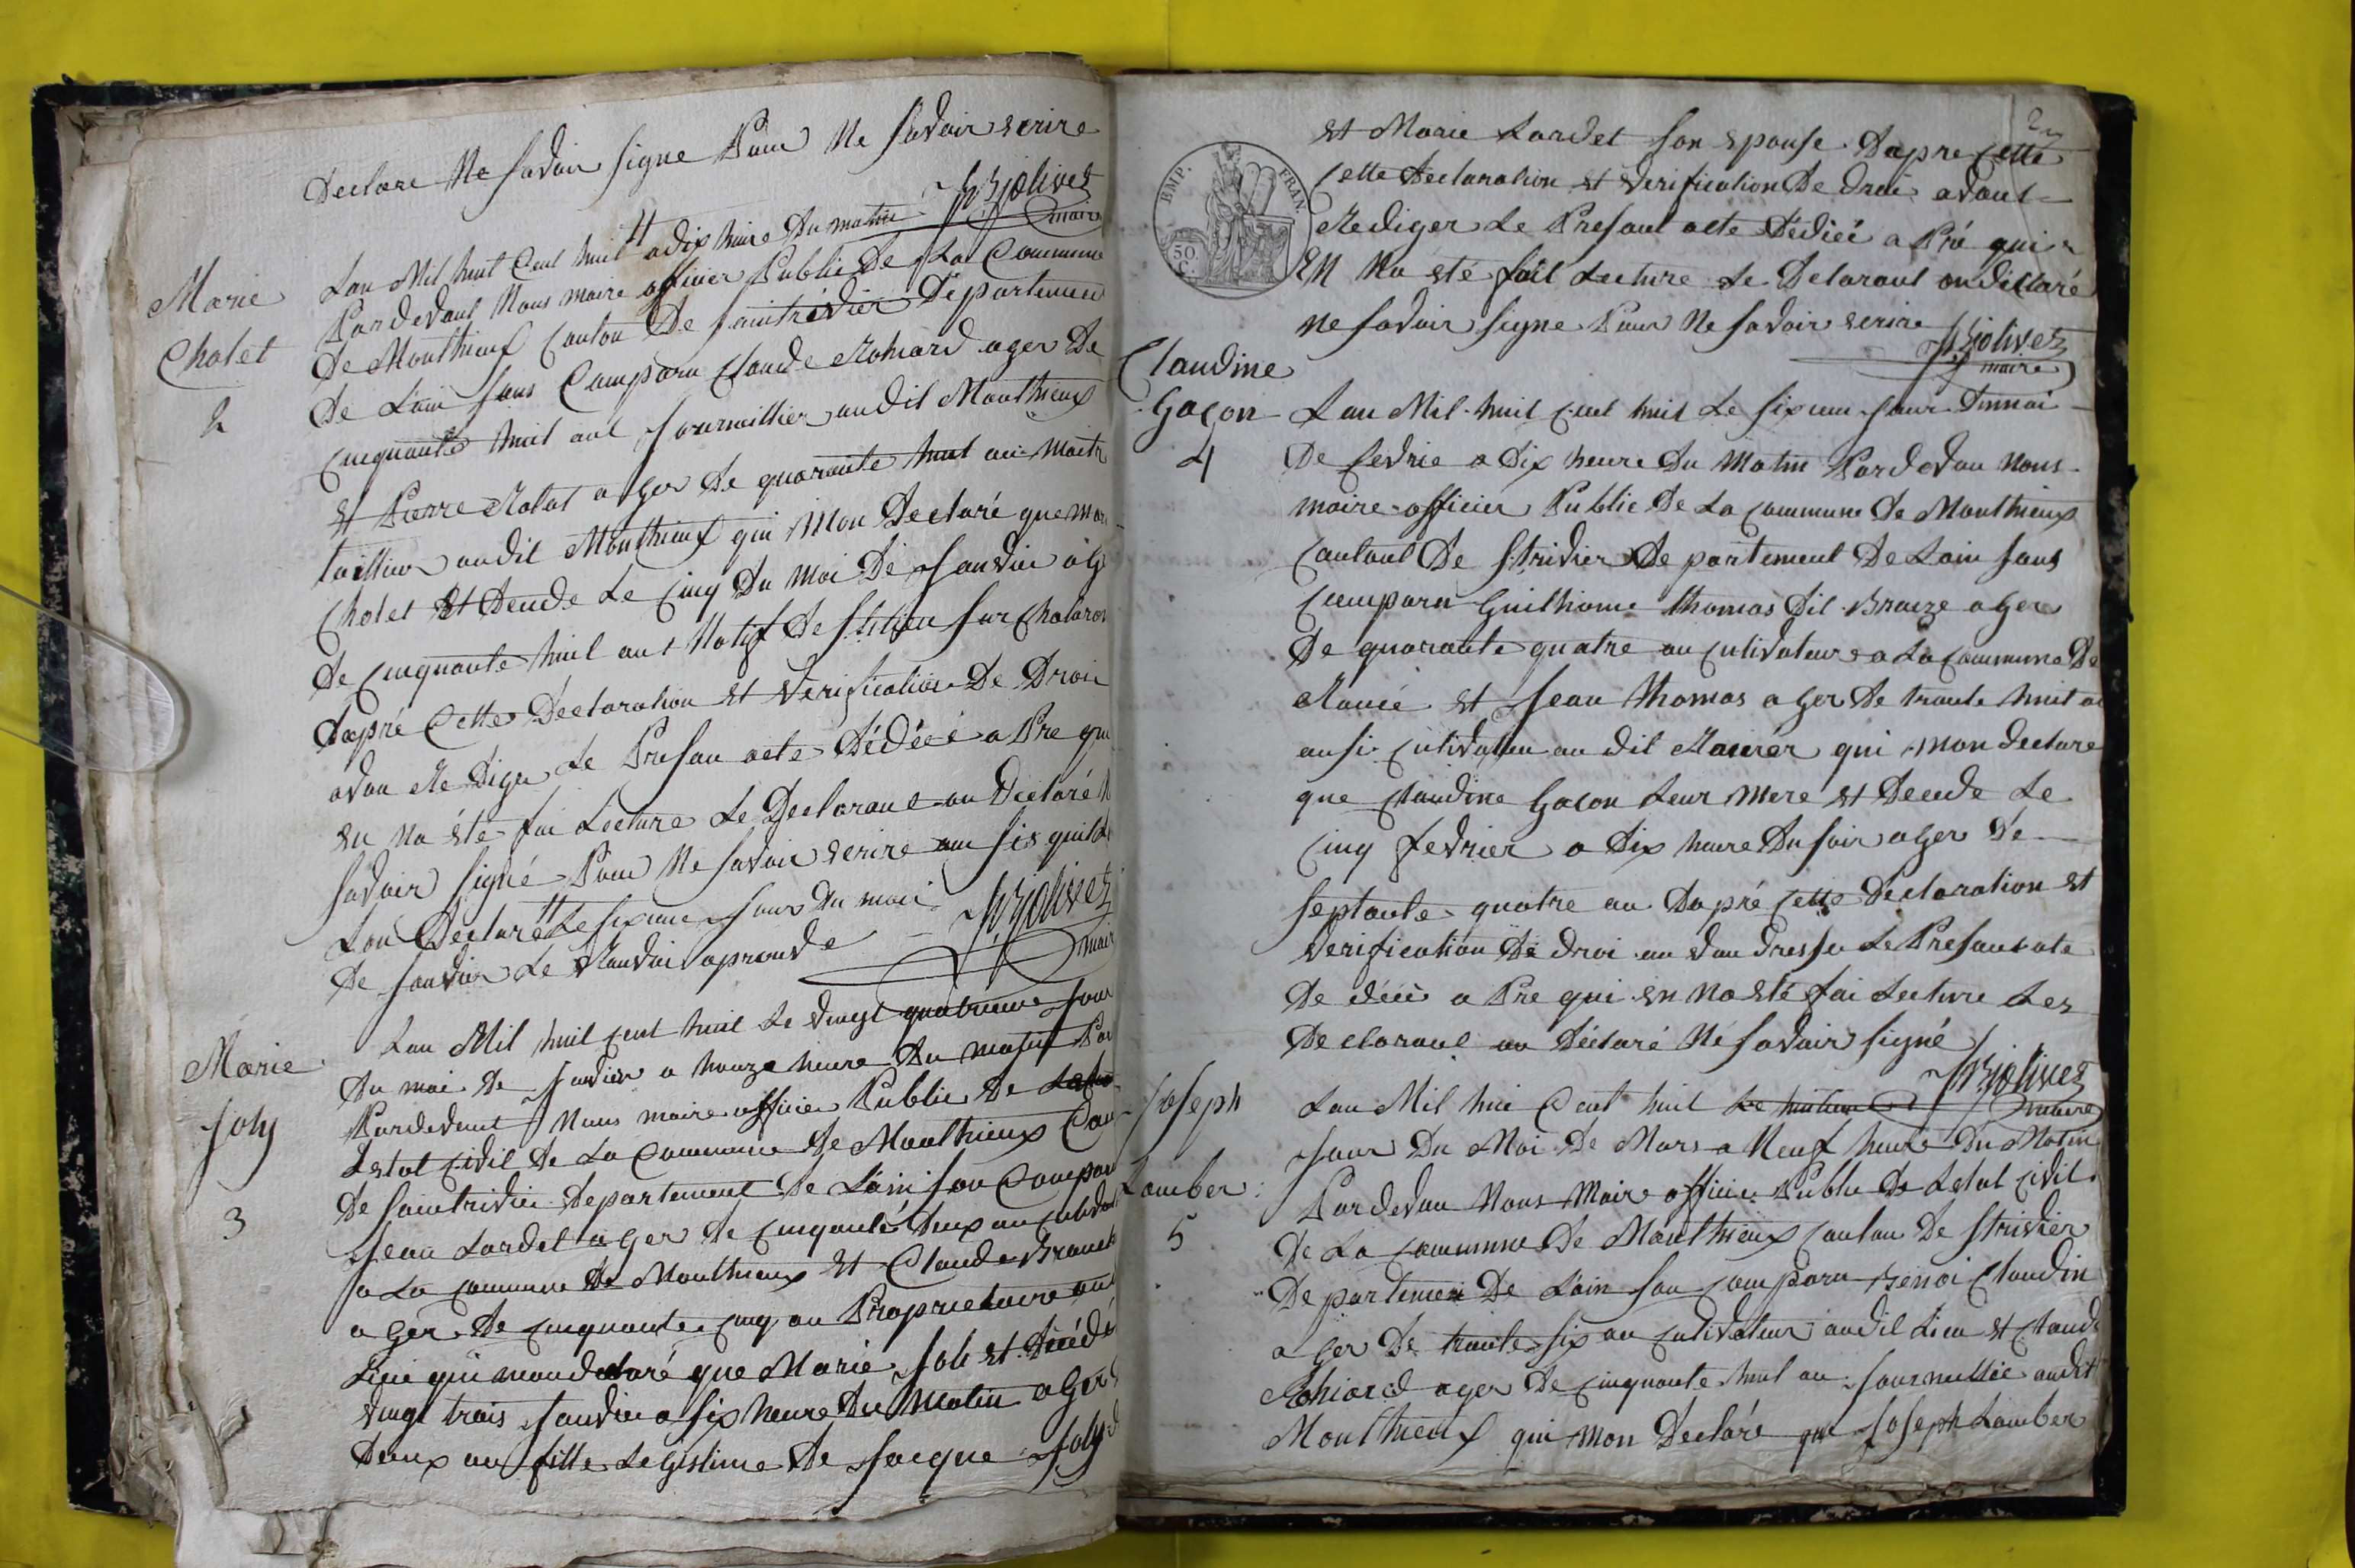 Declare Ne Savoir signe Pour Ne Savoir ecrire
maire
Marie
Chotet
2
Lan Mil huit Cent huit a dix heure Du matin
Pardevant Nous maire officier Public De La Commune
De Monthieux Canton De Saintrivier Departemen
De Lain sans Comparu Claude Rohiard ager De
Cinquante huit ant journillier audit Monthieux
et Pierre Rotat ager de quarante huit an Maitre
taillieur audit Monthieux qui Mon Declaré que marie
Chotet Et Decede Le Cinq Du Moi De Janvier age
De Cinquante huit ant Natif De St Sur Chalaron
Dapré Cette Declaration et Verification De Droi
avan Re Dige Le Presan acte Dédéce a Pre qui
en Na été fai Lecture Le Declarant on Declaré
Savoir Signé Pour Ne Savoir ecrire
Lon Declaré Le sixieme Jour Du moi
De Janvier Le
maire
Marie
Joly
3
Lan Mil huit Cent huit Le vingt quatrieme Jour
Du moi De Janvier a honze heure Du matin Par
Pardevant Nous maire officier Public De
Letat Civil De La Commune De Monthieux Can
De Saintrivier Departement De Lain Son Compar
Jean Lardet ager De Cinquante Deux an
a La Commune De Monthieux Et Claude
ager De Cinquante Cinq an Proprietaire au
Lieu qui mon declaré que Marie Joli et Décédé
vingt trois Janvier a six heure Du Matin ager
Deux an fille Legistime De Jacque Joly
2
EMP. FRAN.
50 C.
et Marie Lardet son epouse Dapre Cette
Cette Declaration et verification De Droi avant
Rediger Le Presant acte Dédécé a Pré qui
EN Na eté fait Lecture Le Delarant on diclaré
ne Savoir signe Pour Ne Savoir ecrire
maire
Claudine
Gacon
4
Lan Mil huit Cent huit Le sixieme Jour Dumoi
De fevrie a Dix heure Du Matin Pardevan Nous
maire officier Public De La Commune De Monthieux
Cantont De Strivier De partement De Lain Sans
Comparu Guilhiome thomas Dit Braize ager
De quarante quatre an Cultivateur a La Commune De
Rancé et Jean Thomas ager De trante huit an
ausi Cultivateu au dit qui mon declare
que Claudine Gacon Leur Mere et Decede Le
Cinq fevrier a Dix heure Du soir ager De
septante quatre an Dapré Cette Declaration et
Verification De droi an van dresse Le Presant ate
De décé a Pre qui en Na eté fai Lecture Les
De clarant on Déclaré Né Savoir signé
maire
Joseph
Lamber
5
Lan Mil hui Cent huit Le huitieme
Jour Du Moi De Mars a Neuf heure Du Matin
Pardevan Nous Maire officie Public De Letat Civil
De La Commune De Monthieux Canton De Strivier
De partemen De Lain Son Comparu Benoi Claudin
ager De trante six an Cultivateur audit Lieu et Claude
Rohiard ager De Cinquante huit an Journillie audit
Monthieux qui Mon Declaré que Joseph Lamber